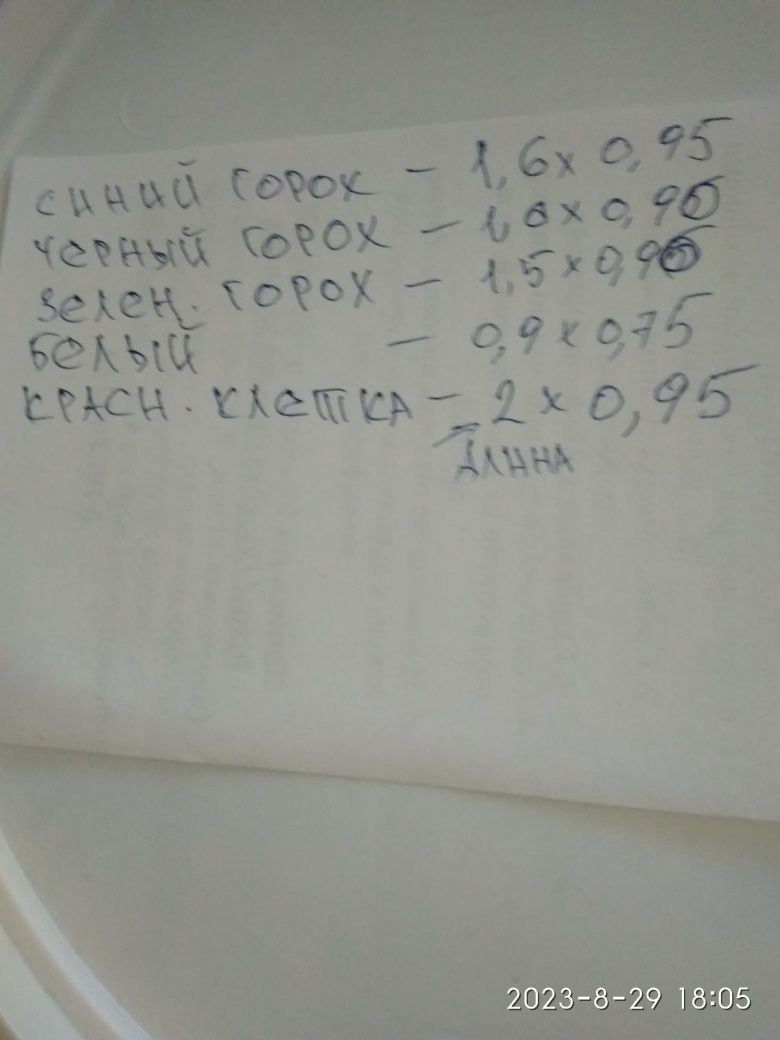 синий горох - 1,6 x 0,95
черный горох - 1,6 x 0,95
зелен. горох - 1,5 x 0,95
белый - 0,9 x 0,75
красн. клетка - 2 x 0,95
длина
2023-8-29 18:05